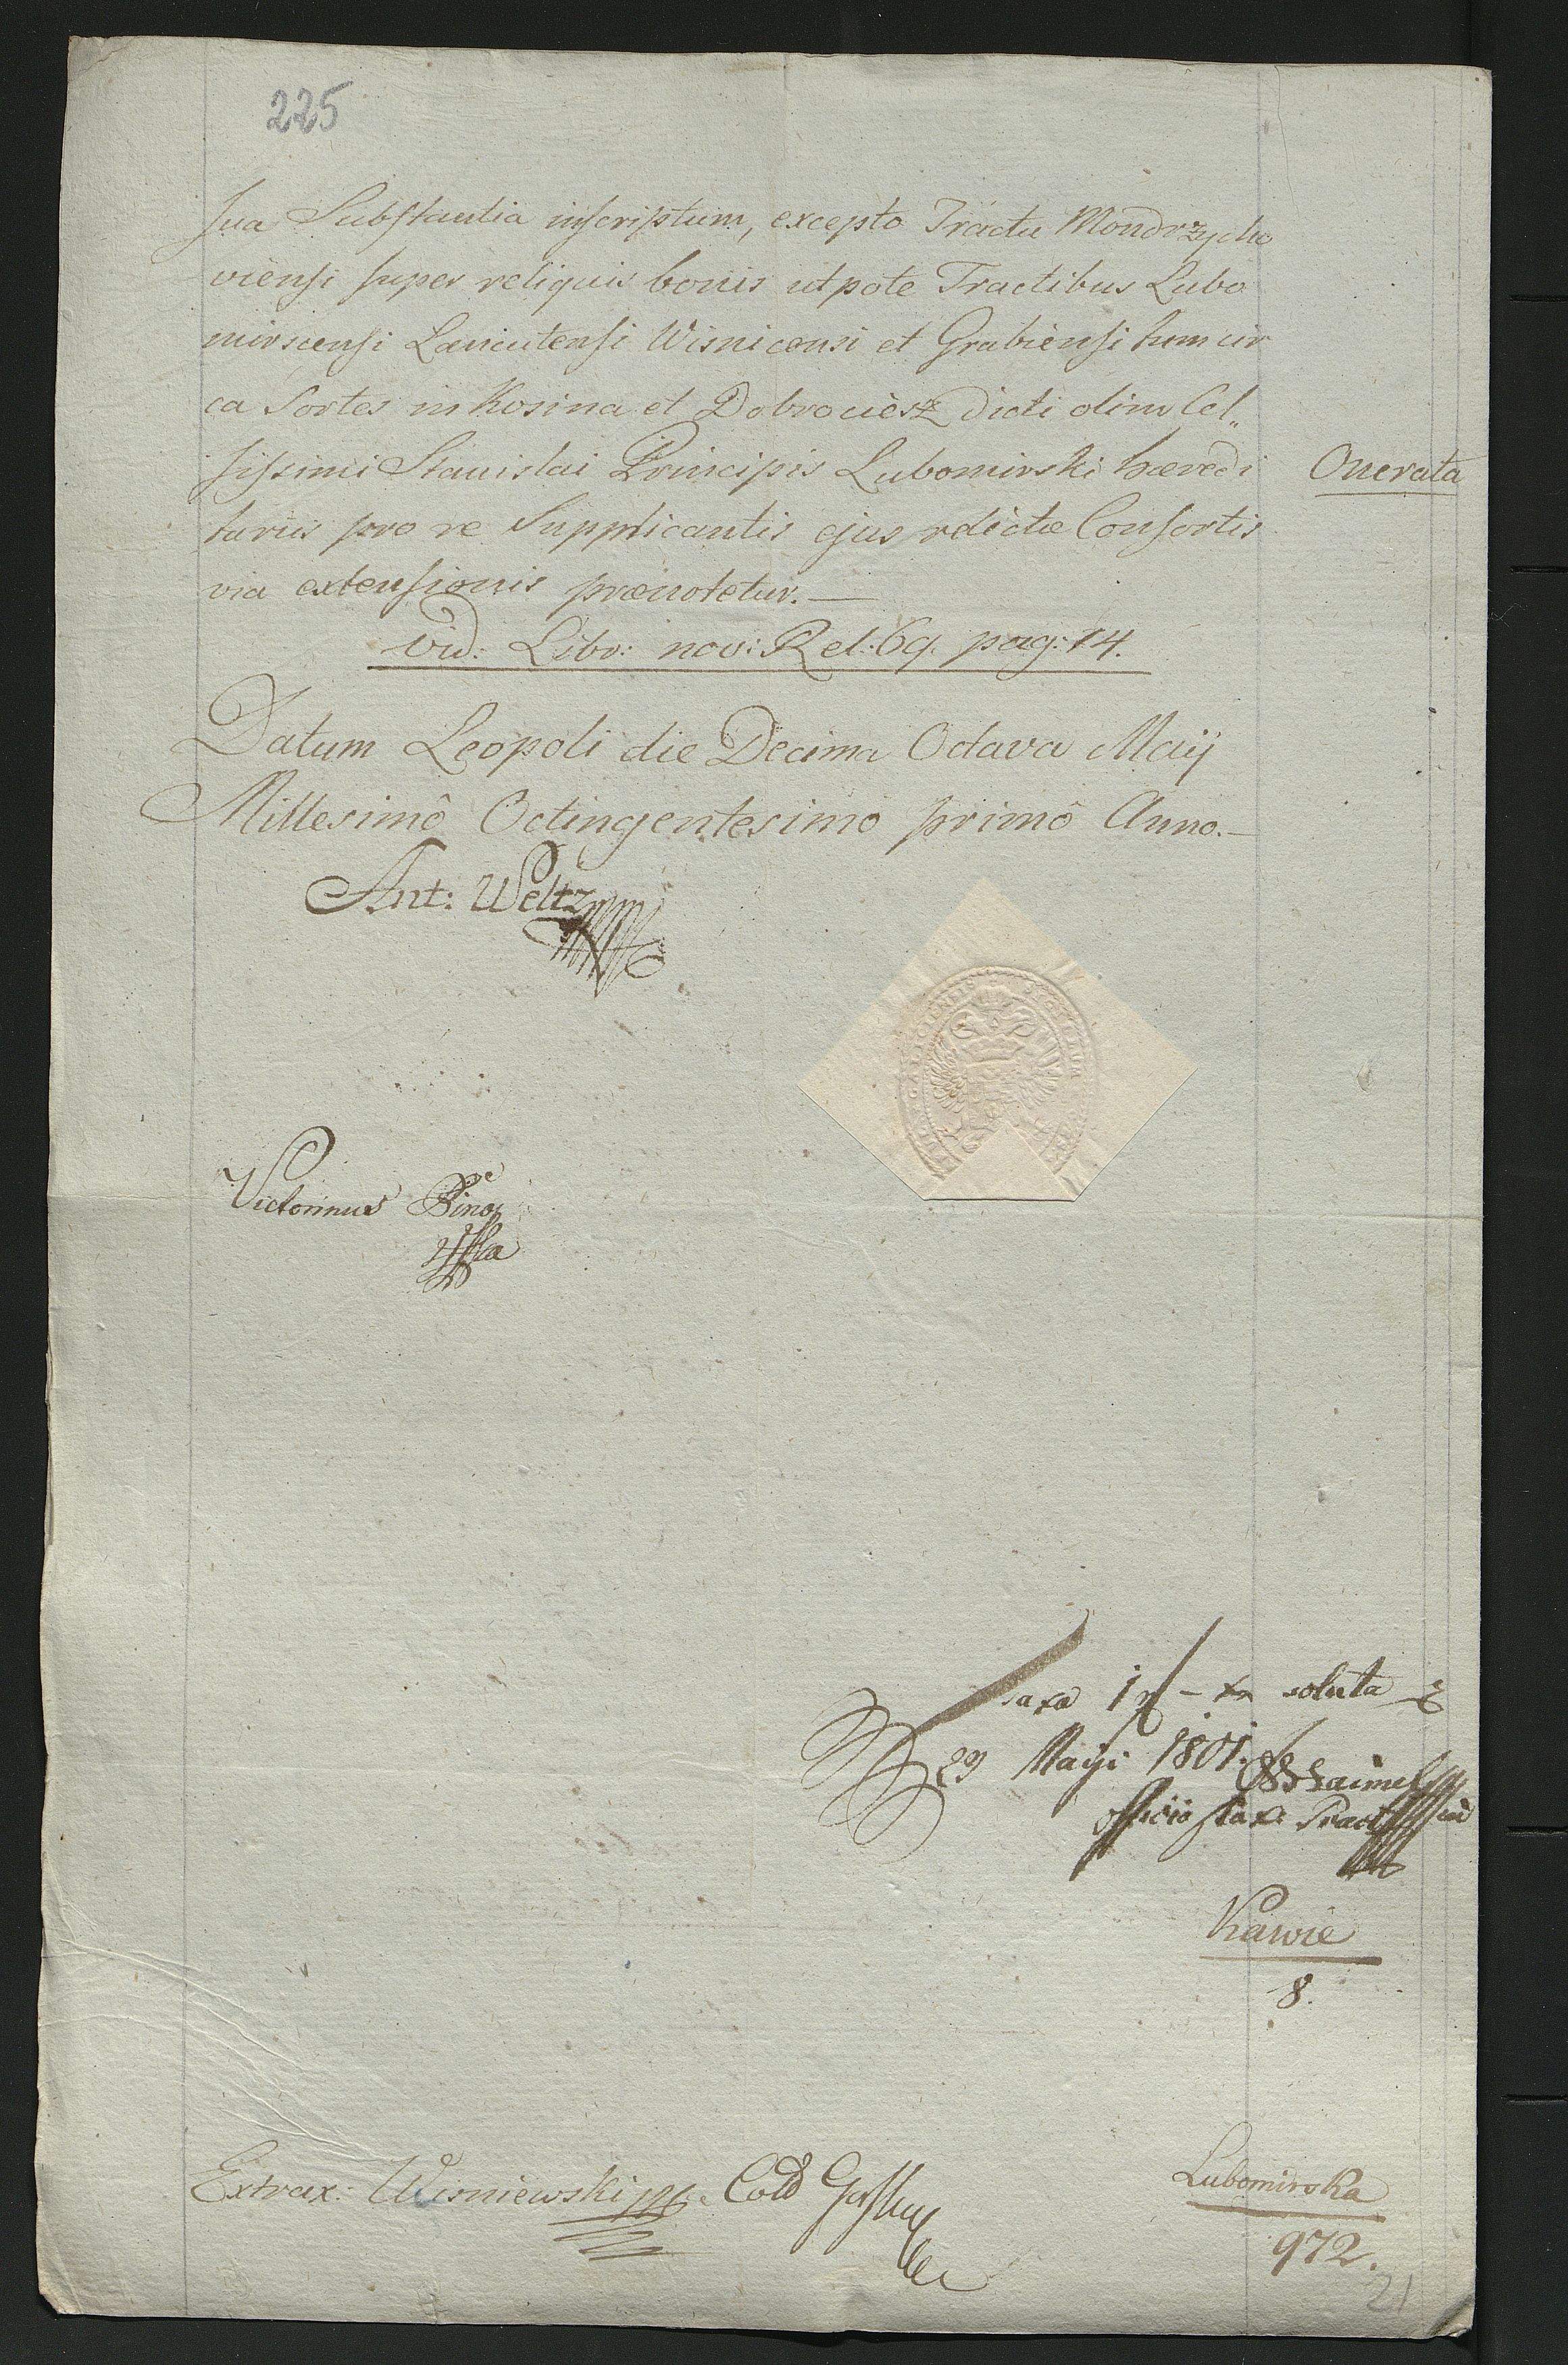 225
sua Substantia inscriptum, excepto Tractu Mondrzycho
viensi super reliquis bonis utpote Tractibus Lubo
mirscensi Lancutensi Wisnicensi et Grabiensi tum cir
ca Sortes in Kosina et Dobrociesz Dicti olim Cel„
sissimi Stanislai Principis Lubomirski hæredi
Onerata
tariis pro re Supplicantis ejus relictæ Consortis
via extensionis prænotetur.—
vid: Libr: nov: Rel: 69. pag: 14.
Datum Leopoli die Decima Octava Maij
Millesimô Octingentesimô primô Anno.—
Ant: Weltz
Victorinus
Taxa 1 f – xr soluta
29 Maji 1801.
officio Tax:
Kawie
8.
Extrax: Wisniewski Cold
Lubomirska
972.
21